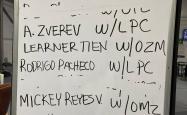 A. ZVEREV W/LPC
LEARNER TIEN W/OZM
RODRIGO PACHECO W/LPC
MICKEY REYES V W/OMZ